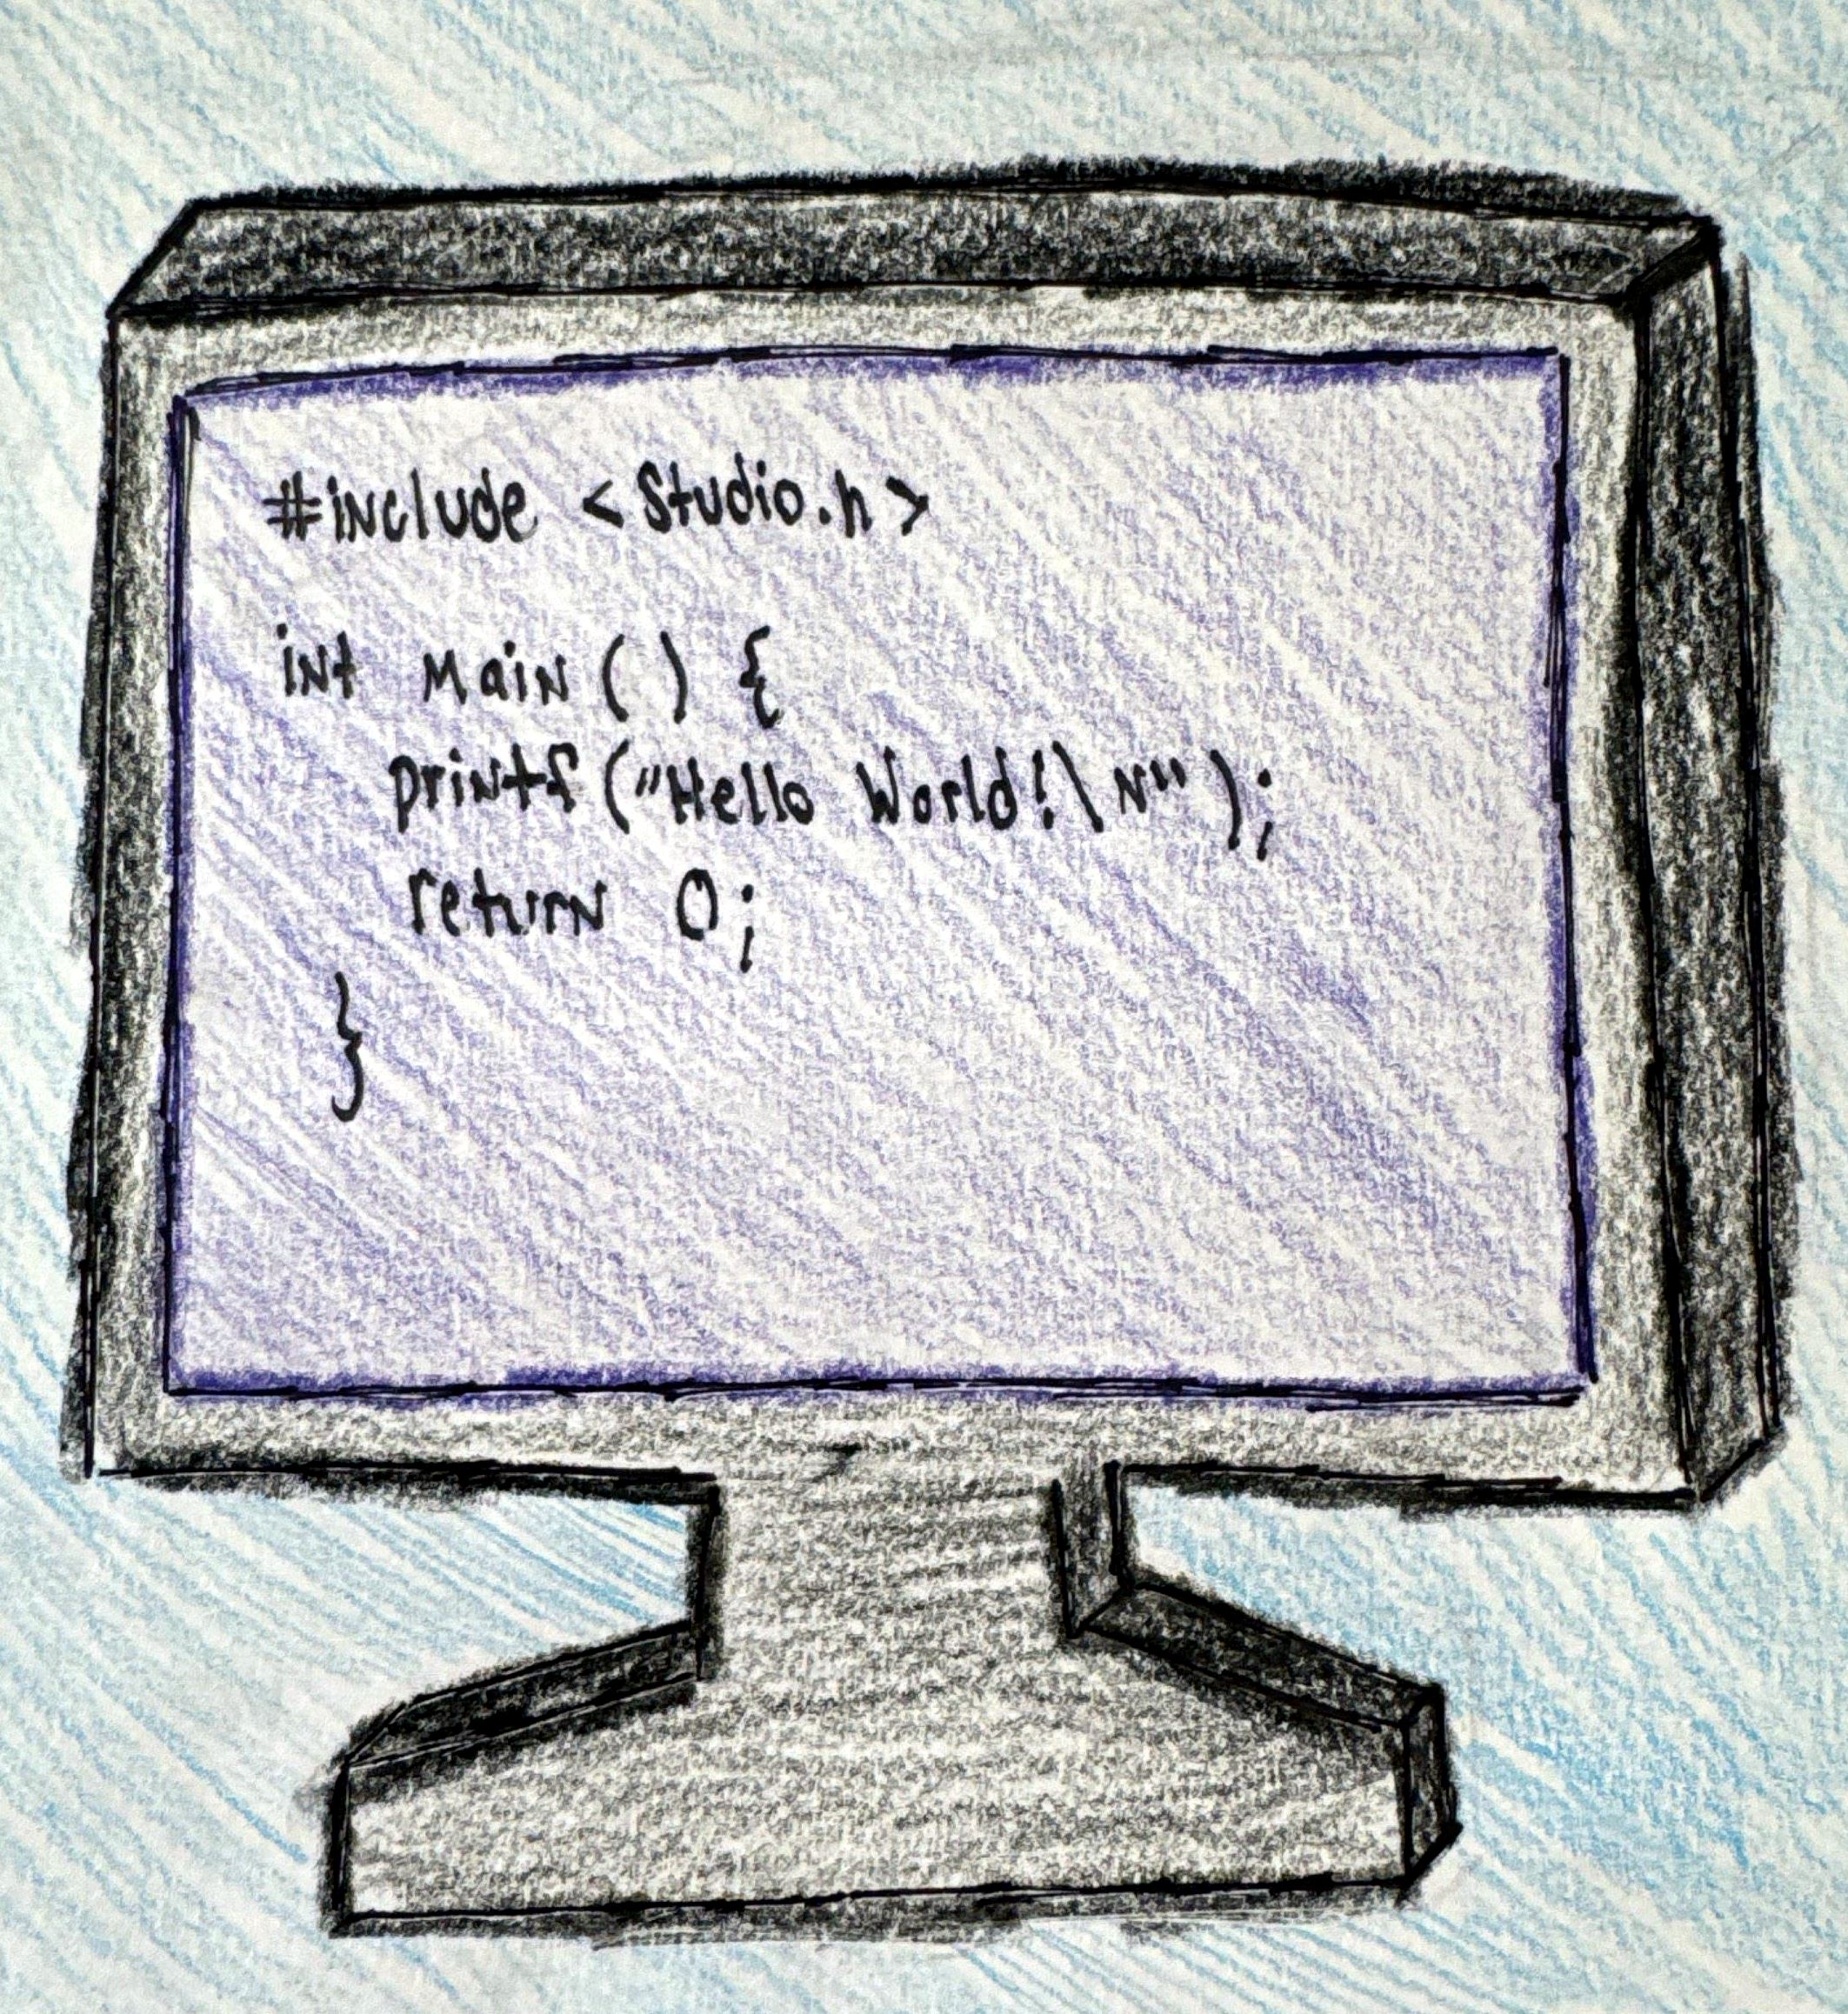 #include <Studio.h>
int main() {
printf("Hello World!\n");
return 0;
}